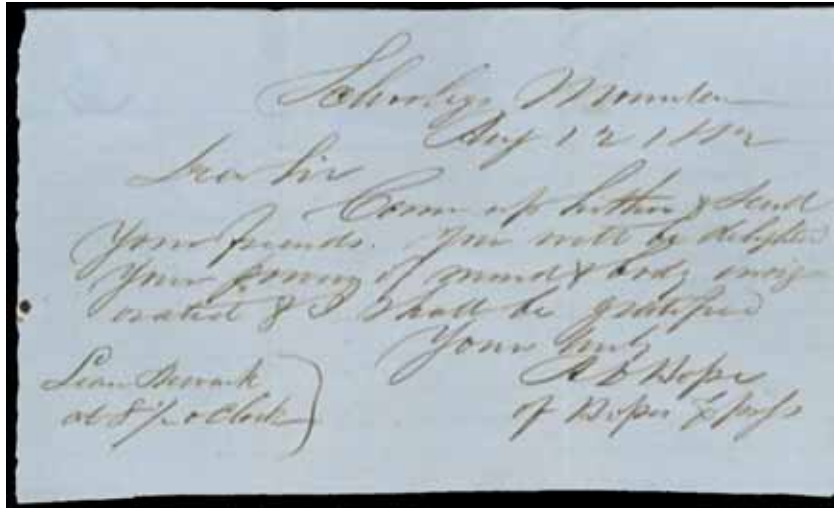 Schooleys Mountain
Aug 12
Dear Sir
Come up hither & send
Your friends. You will be delighted
Your powers of mind & body invig
orated & I shall be gratified
Yours truly
A D Hope
of Hopes Express
Leave Newark
at 8 1/2 o Clock